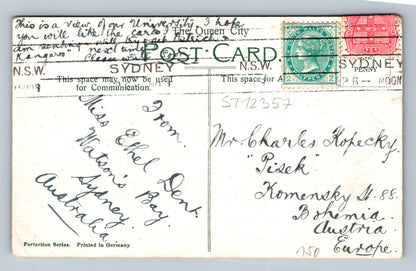 This is a view of our University I hope
you will like the card
am sending
Kangaroo next
The Queen City
POST CARD.
N.S.W. SYDNEY N.S.W. SYDNEY
PENNY
6 - NOON
This space may now be used
for Communication.
This space for A
2 2
ST12357
From.
Miss Ethel Dent.
Watson's Bay
Sydney.
Australia
Mr. Charles Kopecky.
"Pisek"
Komensky St. 88.
Bohemia
Austria.
Europe.
Perfection Series. Printed in Germany
750